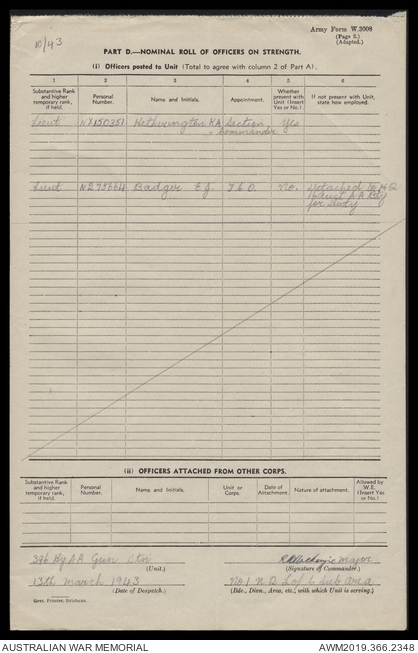 10/43
Army Form W.3008
(Page 2.)
(Adapted.)
PART D.—NOMINAL ROLL OF OFFICERS ON STRENGTH.
(i) Officers posted to Unit (Total to agree with column 2 of Part A).
1 2 3 4 5 6
Substantive Rank and higher temporary rank, if held.
Personal Number.
Name and Initials.
Appointment.
Whether present with Unit (Insert Yes or No.)
If not present with Unit, state how employed.
Lieut NX150351 Hetherington KA Section Yes
Commander
Lieut Badger E.J. No. Detached to HQ
for duty
(ii) OFFICERS ATTACHED FROM OTHER CORPS.
Substantive Rank and higher temporary rank, if held.
Personal Number.
Name and Initials.
Unit or Corps.
Date of Attachment.
Nature of attachment.
Allowed by W.E. (Insert Yes or No.)
396 Hy AA Gun Stn
(Unit.)
Major
(Signature of Commander.)
13th March 1943
(Date of Despatch.)
No. 1 N.Q. L of C Sub Area
(Bde., Divn., Area, etc., with which Unit is serving.)
Govt. Printer, Brisbane.
AUSTRALIAN WAR MEMORIAL
AWM2019.366.2348